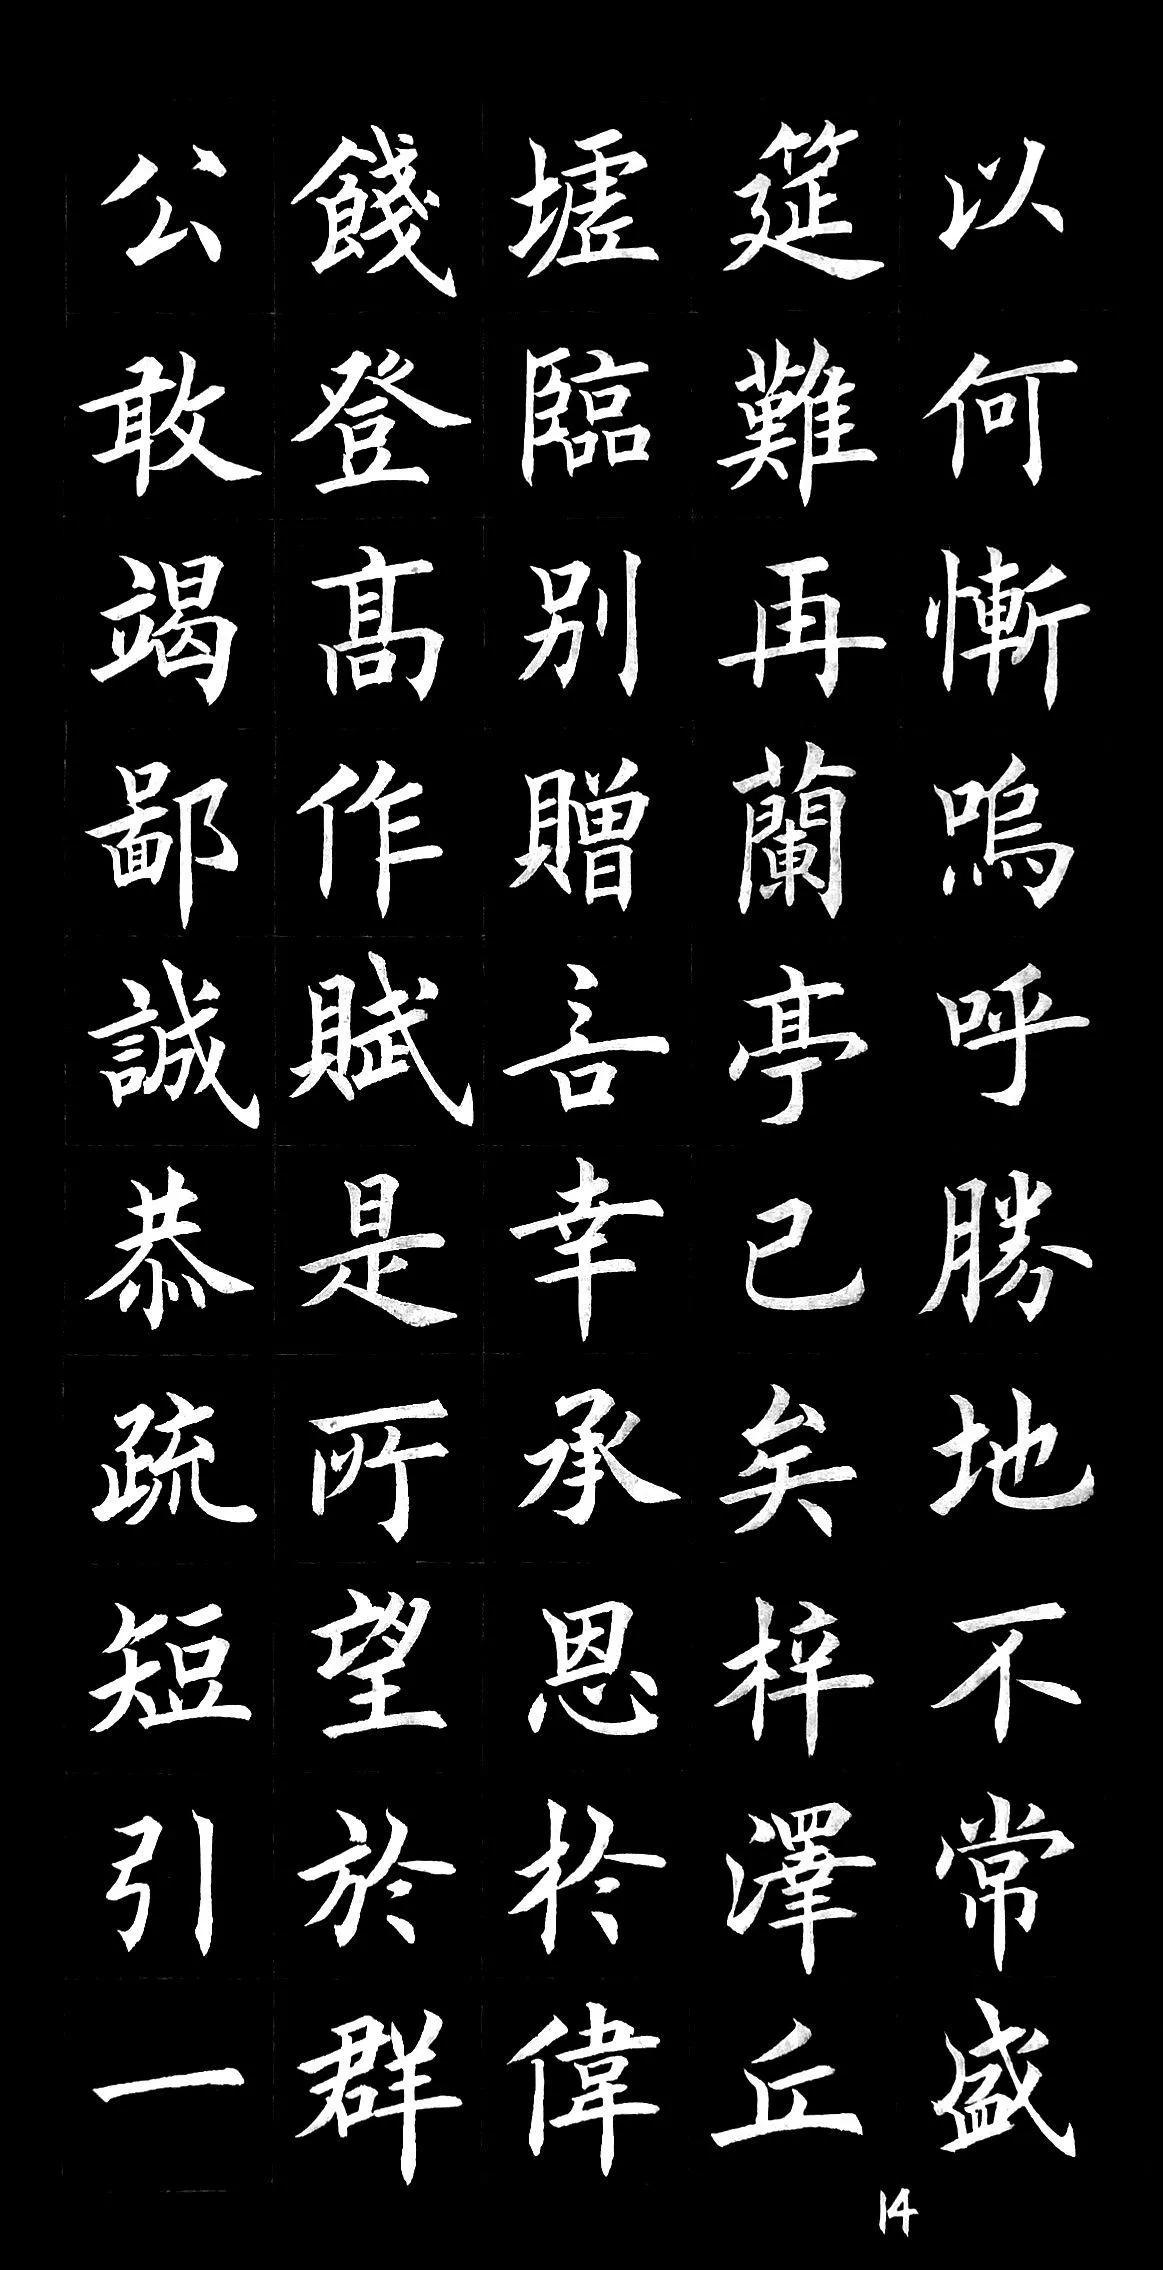 以何慚嗚呼勝地不常盛
筵難再蘭亭已矣梓澤丘
墟臨别贈言幸承恩於偉
餞登髙作賦是所望於群
公敢竭鄙誠恭疏短引一
14